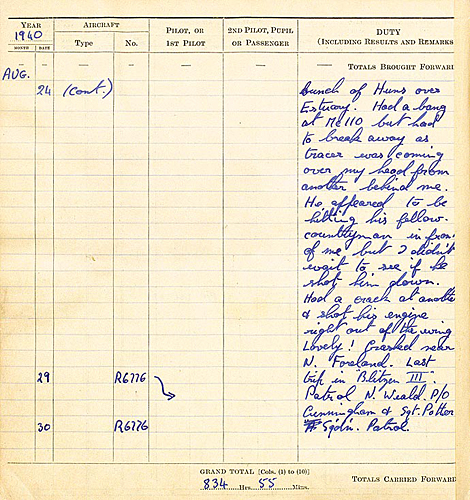 YEAR
1940
AIRCRAFT
PILOT, OR
1ST PILOT
2ND PILOT, PUPIL
OR PASSENGER
DUTY
(INCLUDING RESULTS AND REMARKS
MONTH DATE Type No.
— — — — — — TOTALS BROUGHT FORWARD
AUG.
24 (cont.) bunch of Huns over
Estuary. Had a bang
at Me 110 but had
to break away as
tracer was coming
over my head from
another behind me.
He appeared to be
hitting his fellow-
countryman in front
of me but I didn't
wait to see if he
shot him down.
Had a crack at another
& shot his engine
right out of the wing
Lovely! Crashed near
N. Foreland. Last
29 R6776 trip in Blitzen III.
Patrol N. Weald. P/O
Cunningham & Sgt. Potter
30 R6776 Sqdn. Patrol.
GRAND TOTAL [Cols. (1) to (10)]
834 Hrs. 55 Mins.
TOTALS CARRIED FORWARD